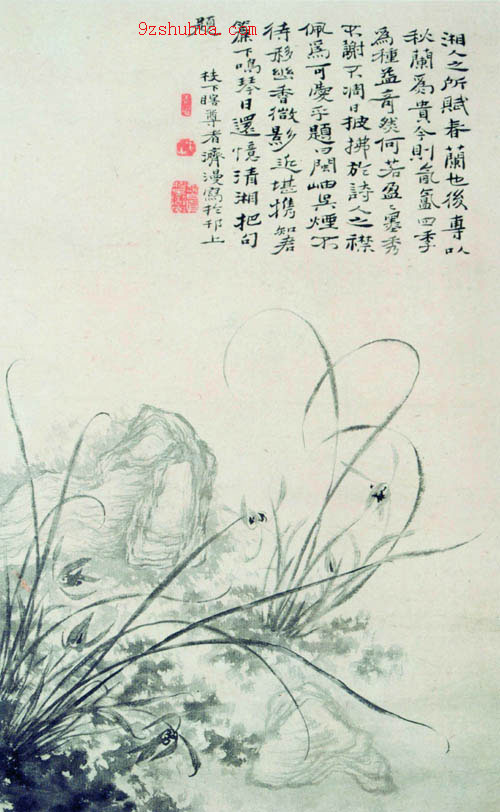 9zshuhua.com
湘人之所賦春蘭也後專以
秋蘭爲貴今則氤氳四季
爲種益奇然何若盈〻墨秀
不謝不凋日披拂於詩人之襟
佩爲可慶乎題曰閩岫吳煙不
待移幽香微影近堪携知君
簾下鳴琴日還憶清湘把句
題
枝下瞎尊者濟漫寫於邗上